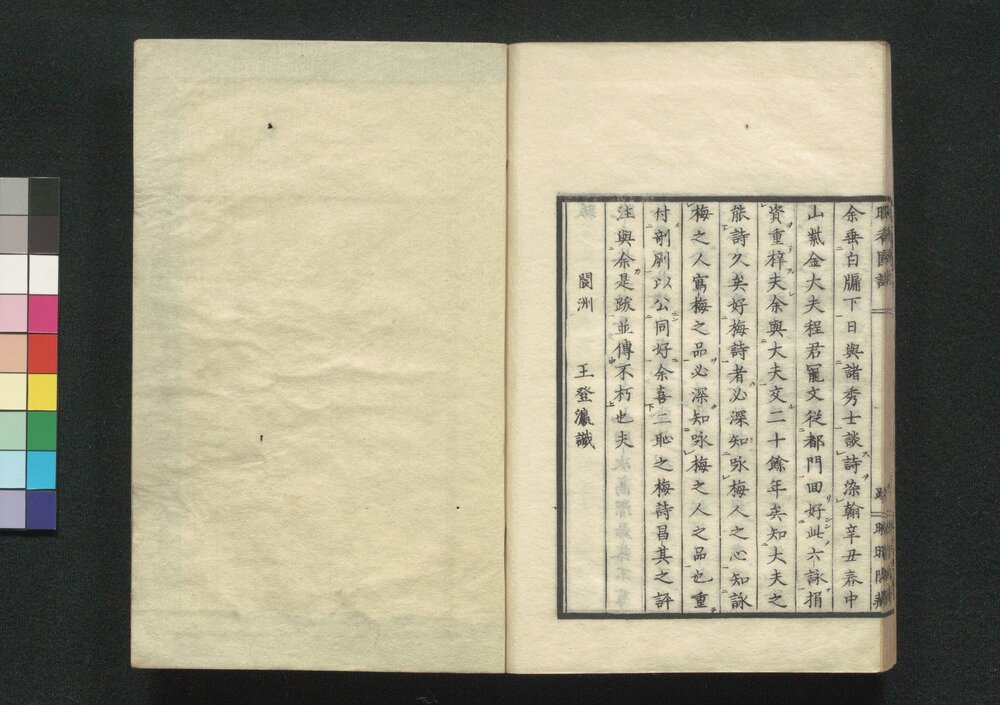 余垂白牖下日與諸秀士談詩染翰辛丑春中
山紫金大夫程君寵文從都門回好此六詠捐
資重梓夫余與大夫交二十餘年矣知大夫之
能詩久矣好梅詩者必深知咏梅人之心知詠
梅之人寫梅之品必深知咏梅之人之品也重
付剞劂以公同好余喜二恥之梅詩昌其之評
註與余是跋並傳不朽也夫
閩洲 王登瀛識